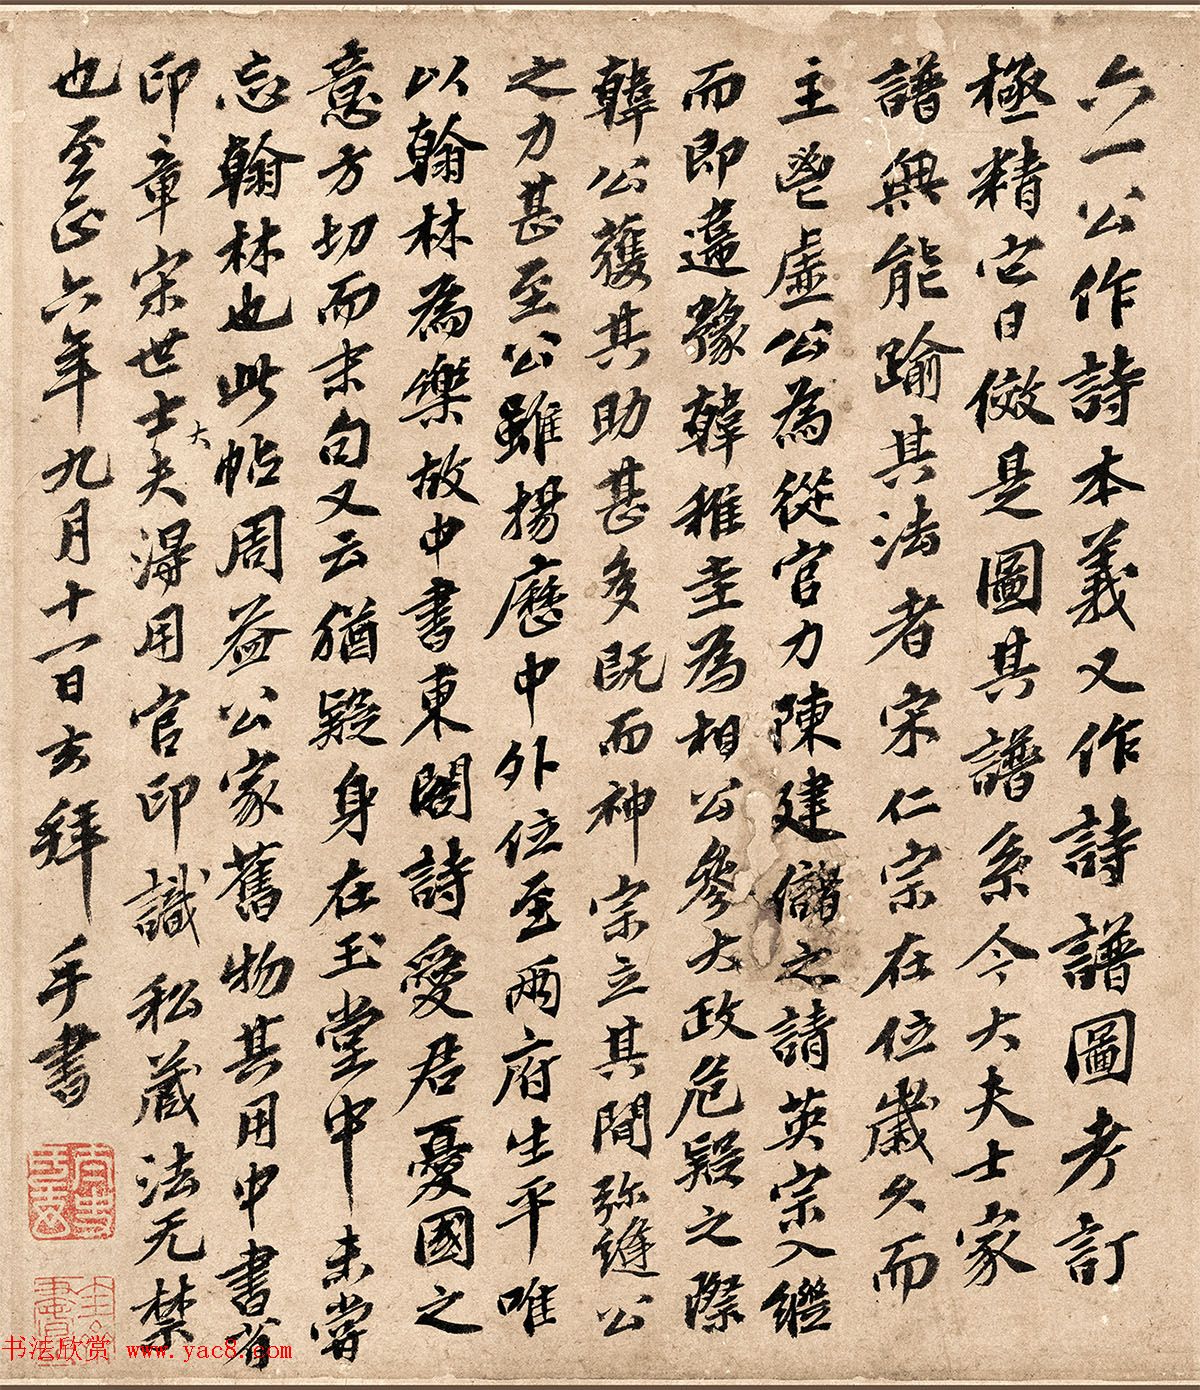 六一公作詩本義又作詩譜圖考訂
極精它日傚是圖其譜系今大夫士家
譜無能踰其法者宋仁宗在位歲久而
主鬯虛公為從官力陳建儲之請英宗入繼
而即違豫韓稚圭為相公參大政危疑之際
韓公獲其助甚多既而神宗立其間弥縫公
之力甚至公雖揚歷中外位至兩府生平唯
以翰林為樂故中書東閣詩愛君憂國之
意方切而末句又云猶疑身在玉堂中未嘗
忘翰林也此帖周益公家舊物其用中書省
印章宋世士大夫得用官印識私蔵法无禁
也至正六年九月十一日玄拜手書
书法欣赏 www.yac8.com